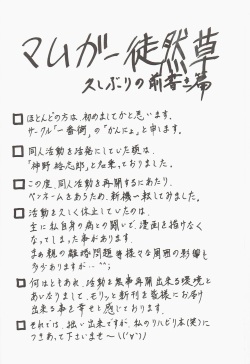 マムガー徒然草
久しぶりの前書き篇
ほとんどの方は、初めましてかと思います。
サークル「一番街」の「がんによ」と申します。
同人活動を活発にしていた頃は、
「神野 裕志郎」と名乗っておりました。
この度、同人活動を再開するにあたり、
ペンネームをあらため、新機一転してみました。
活動を久しく休止していたのは、
主に私自身の病との闘いで、漫画を描けなく
なってしまった事があります。
まぁ親の離婚問題等様々な周囲の影響も
多少ありますが‥^^;
何はともあれ、活動を無事再開出来る環境と
あいなりまして、モリッと新刊を皆様にお届け
出来る事を幸せと感じております。
それでは、拙い出来ですが、私のリハビリ本(笑)に
つきあって下さいませ〜\(^▽^)/